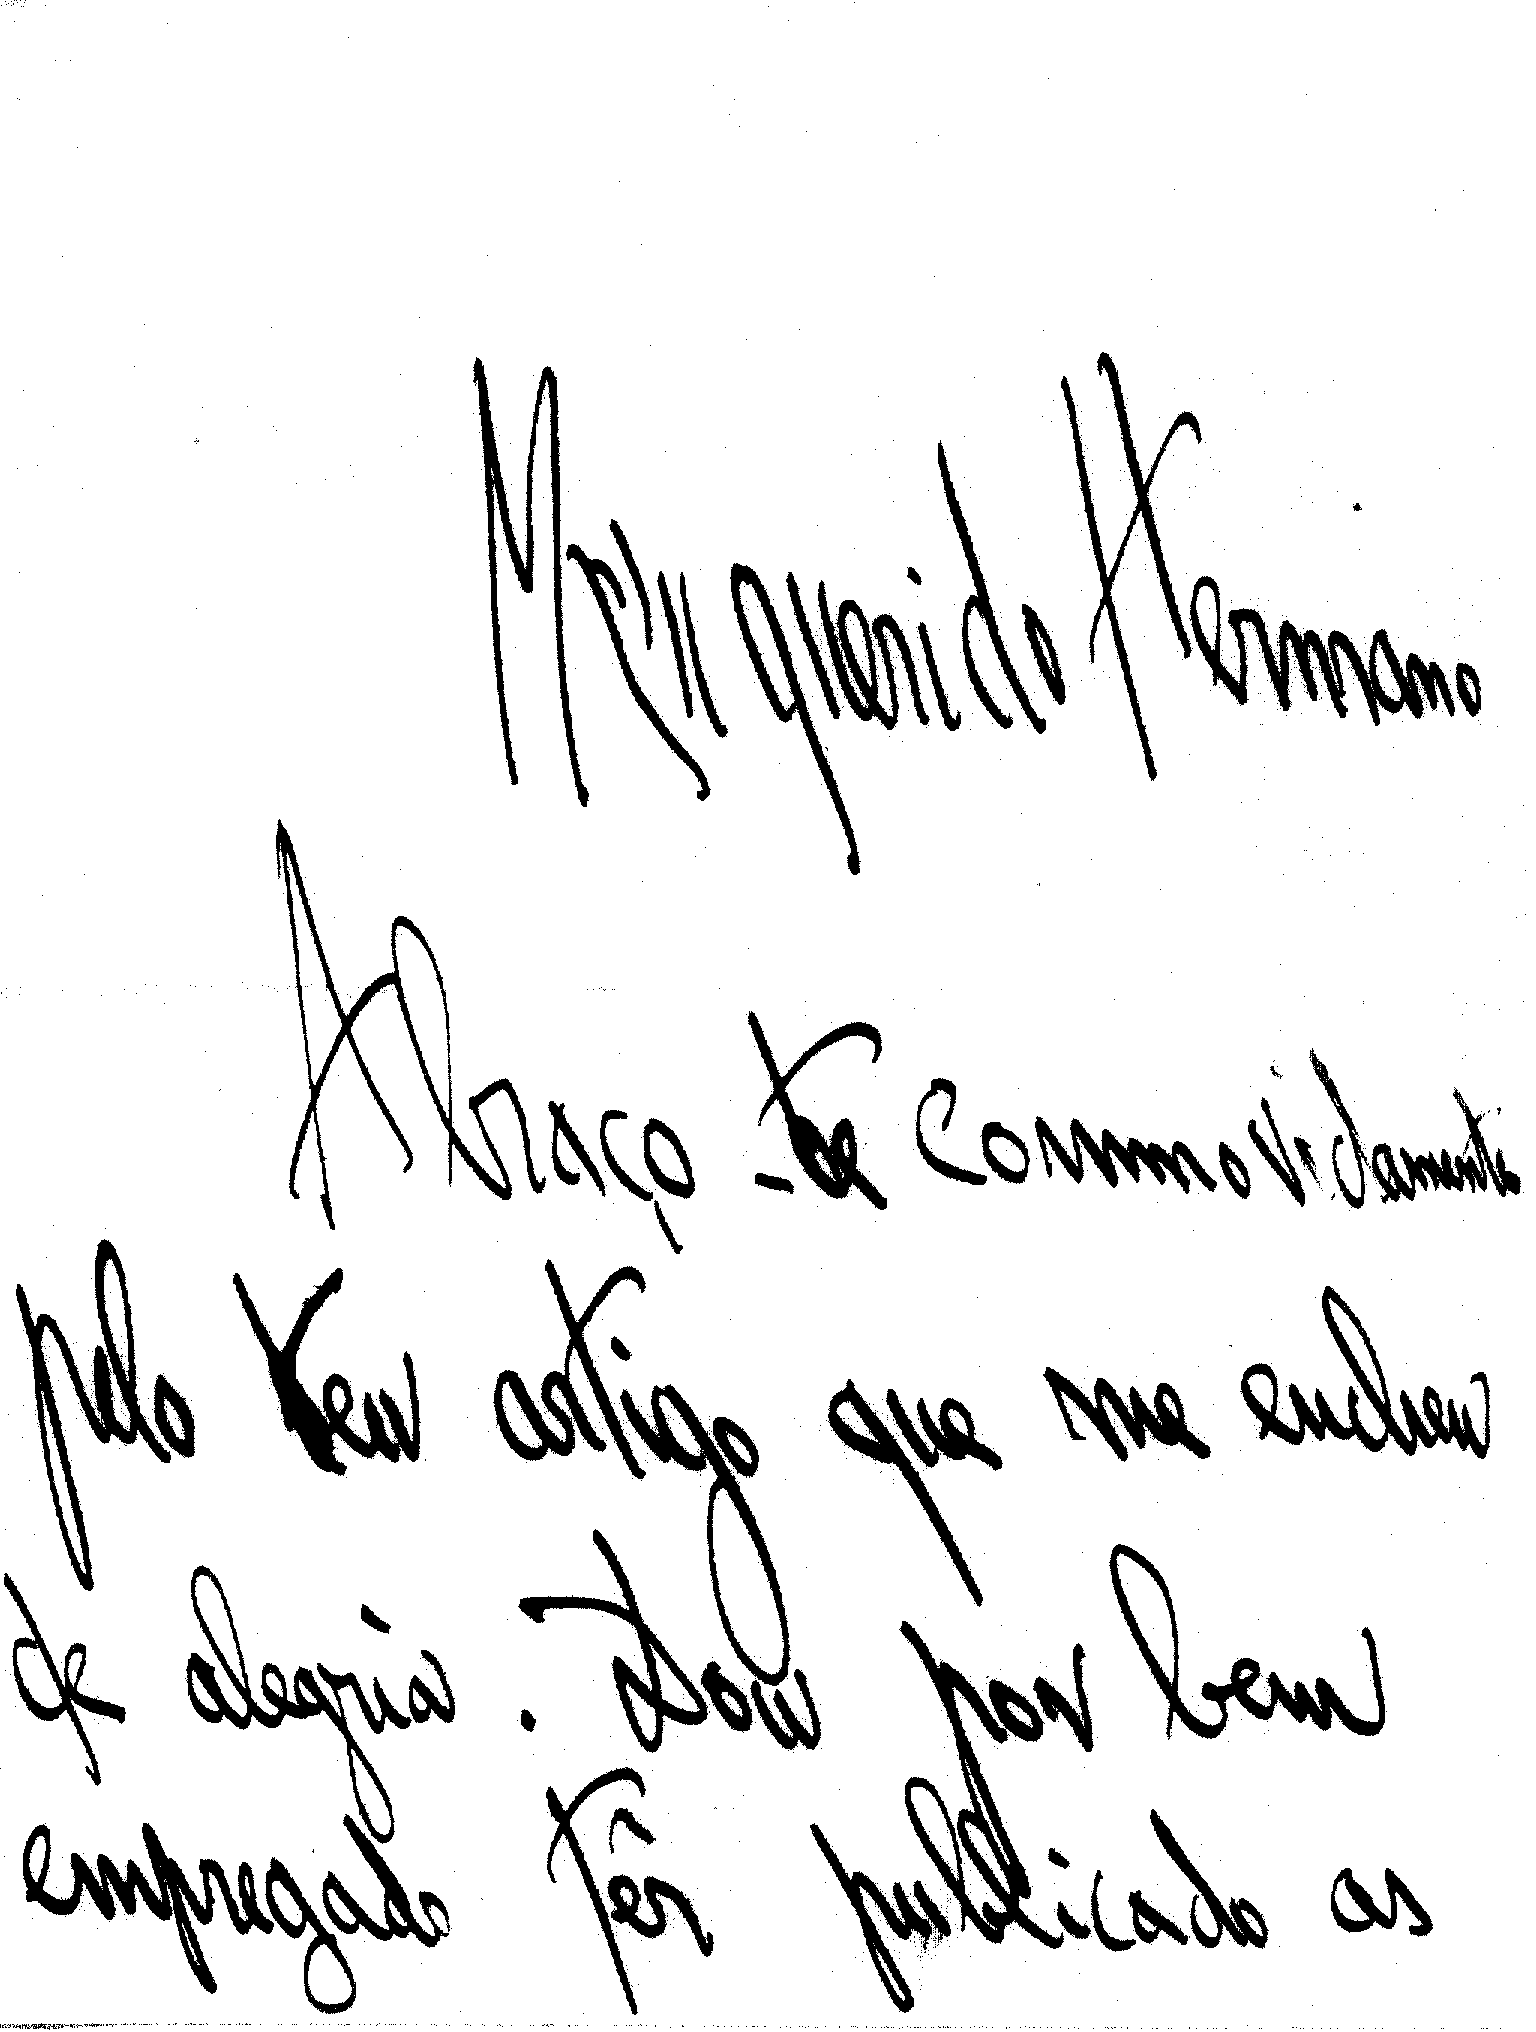 Meu querido Hermano
Abraço-te commovidamente
pelo teu artigo que me encheu
de alegria. Dou por bem
empregado têr publicado as